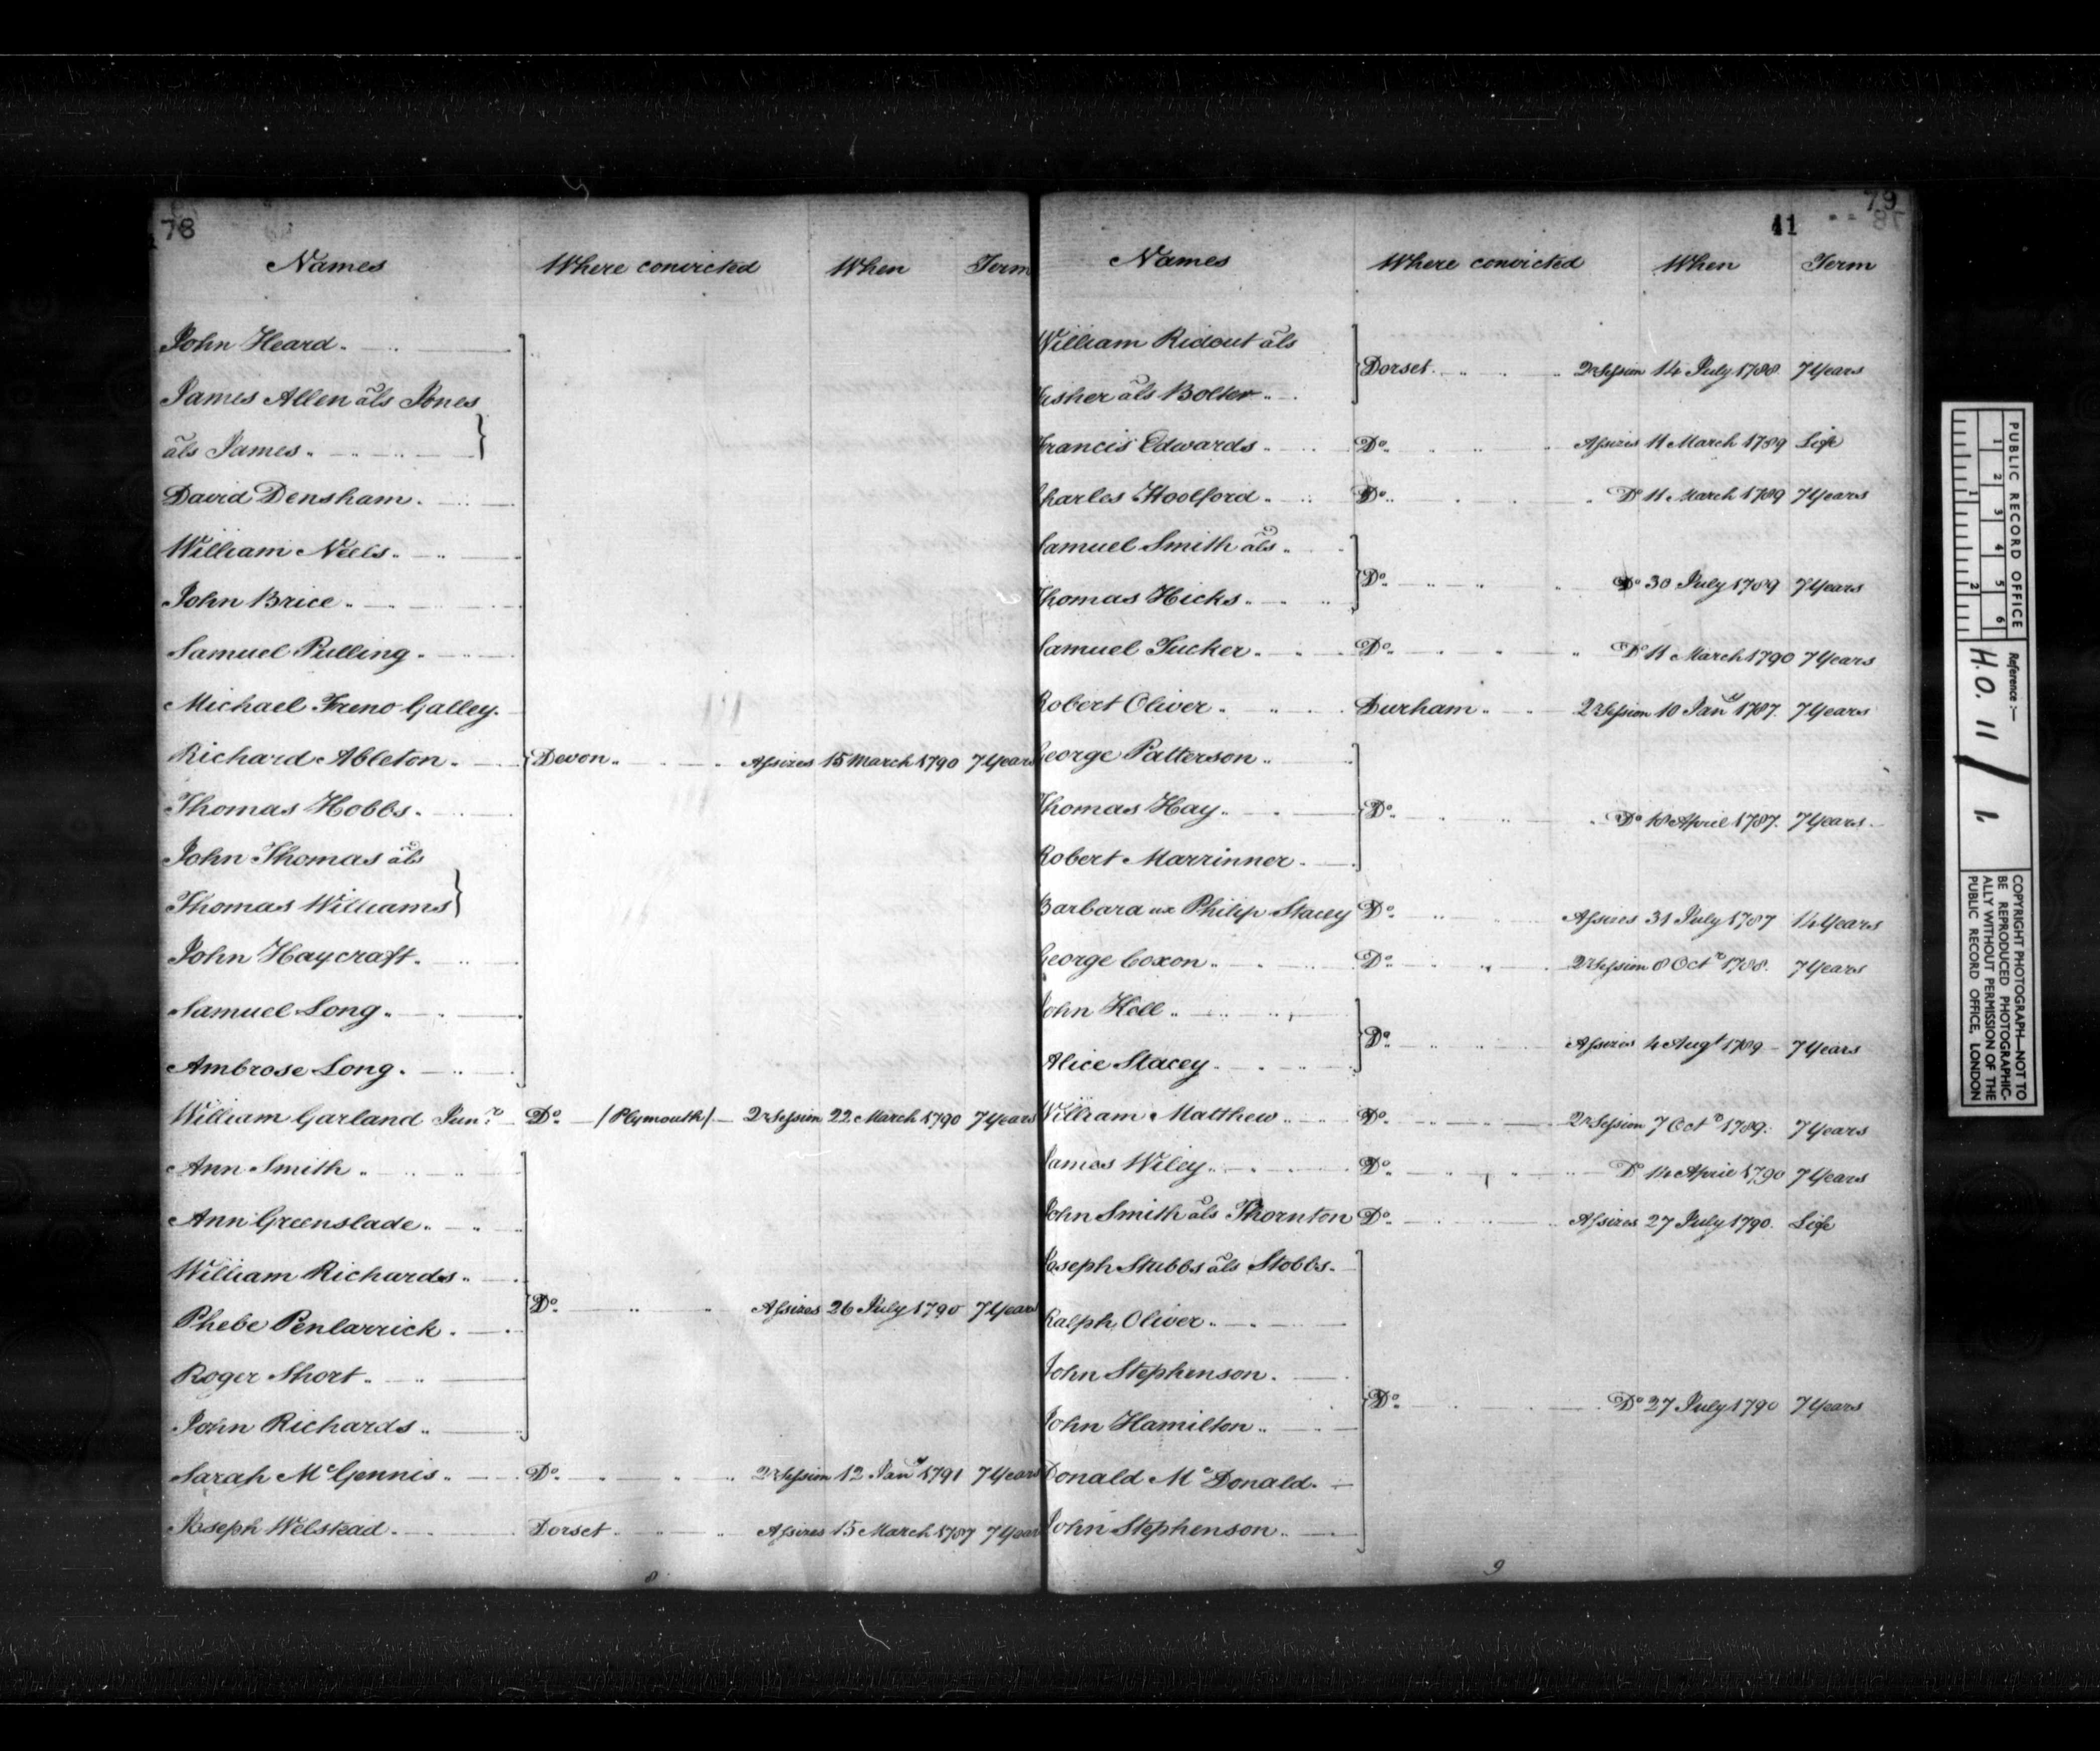 78
Names Where convicted When Term
John Heard
James Allen als Jones
als James
David Densham
William Neels
John Brice
Samuel Pulling
Michael Freno Galley
Richard Ableton Devon Assizes 15 March 1790 7 Years
Thomas Hobbs
John Thomas als
Thomas Williams
John Haycraft
Samuel Long
Ambrose Long
William Garland Junr Do /Plymouth/ Qr Session 22 March 1790 7 Years
Ann Smith
Ann Greenslade
William Richards
Do Assizes 26 July 1790 7 Years
Phebe Penlarrick
Roger Short
John Richards
Sarah McGennis Do Qr Session 12 Jany 1791 7 Years
Joseph Welstead Dorset Assizes 15 March 1787 7 Year
8
79
41
Names Where convicted When Term
William Ridout als
Dorset Qr Session 14 July 1788 7 Years
Fisher als Bolter
Francis Edwards Do Assizes 11 March 1789 Life
Charles Hoolford Do Do 11 March 1789 7 Years
Samuel Smith als
Do Do 30 July 1789 7 Years
Thomas Hicks
Samuel Tucker Do Do 11 March 1790 7 Years
Robert Oliver Durham Qr Session 10 Jany 1787 7 Years
George Patterson
Thomas Hay Do Do 18 April 1787 7 Years
Robert Marrinner
Barbara ux Philip Stacey Do Assizes 31 July 1787 14 Years
George Coxon Do Qr Session 8 Octr 1788 7 Years
John Hall
Do Assizes 4 Augt 1789 7 Years
Alice Stacey
William Matthew Do Qr Session 7 Octr 1789 7 Years
James Wiley Do Do 14 April 1790 7 Years
John Smith als Thornton Do Assizes 27 July 1790 Life
Joseph Stubbs als Stobbs
Ralph Oliver
John Stephenson
Do Do 27 July 1790 7 Years
John Hamilton
Donald McDonald
John Stephenson
9
PUBLIC RECORD OFFICE
1 2 3 4 5 6
1 2
Reference :-
H.O. 11 / 1.
COPYRIGHT PHOTOGRAPH—NOT TO
BE REPRODUCED PHOTOGRAPHIC-
ALLY WITHOUT PERMISSION OF THE
PUBLIC RECORD OFFICE, LONDON